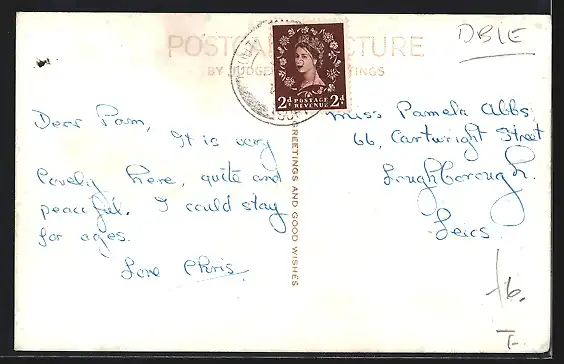 POSTCARD PICTURE
BY JUDGES HASTINGS
DBIE
2d POSTAGE REVENUE 2d
GREETINGS AND GOOD WISHES
Dear Pam,
It is very
lovely here, quite and
peaceful. I could stay
for ages.
Love Chris.
Miss Pamela Abbs
66, Cartwright Street
Loughborough.
Leics